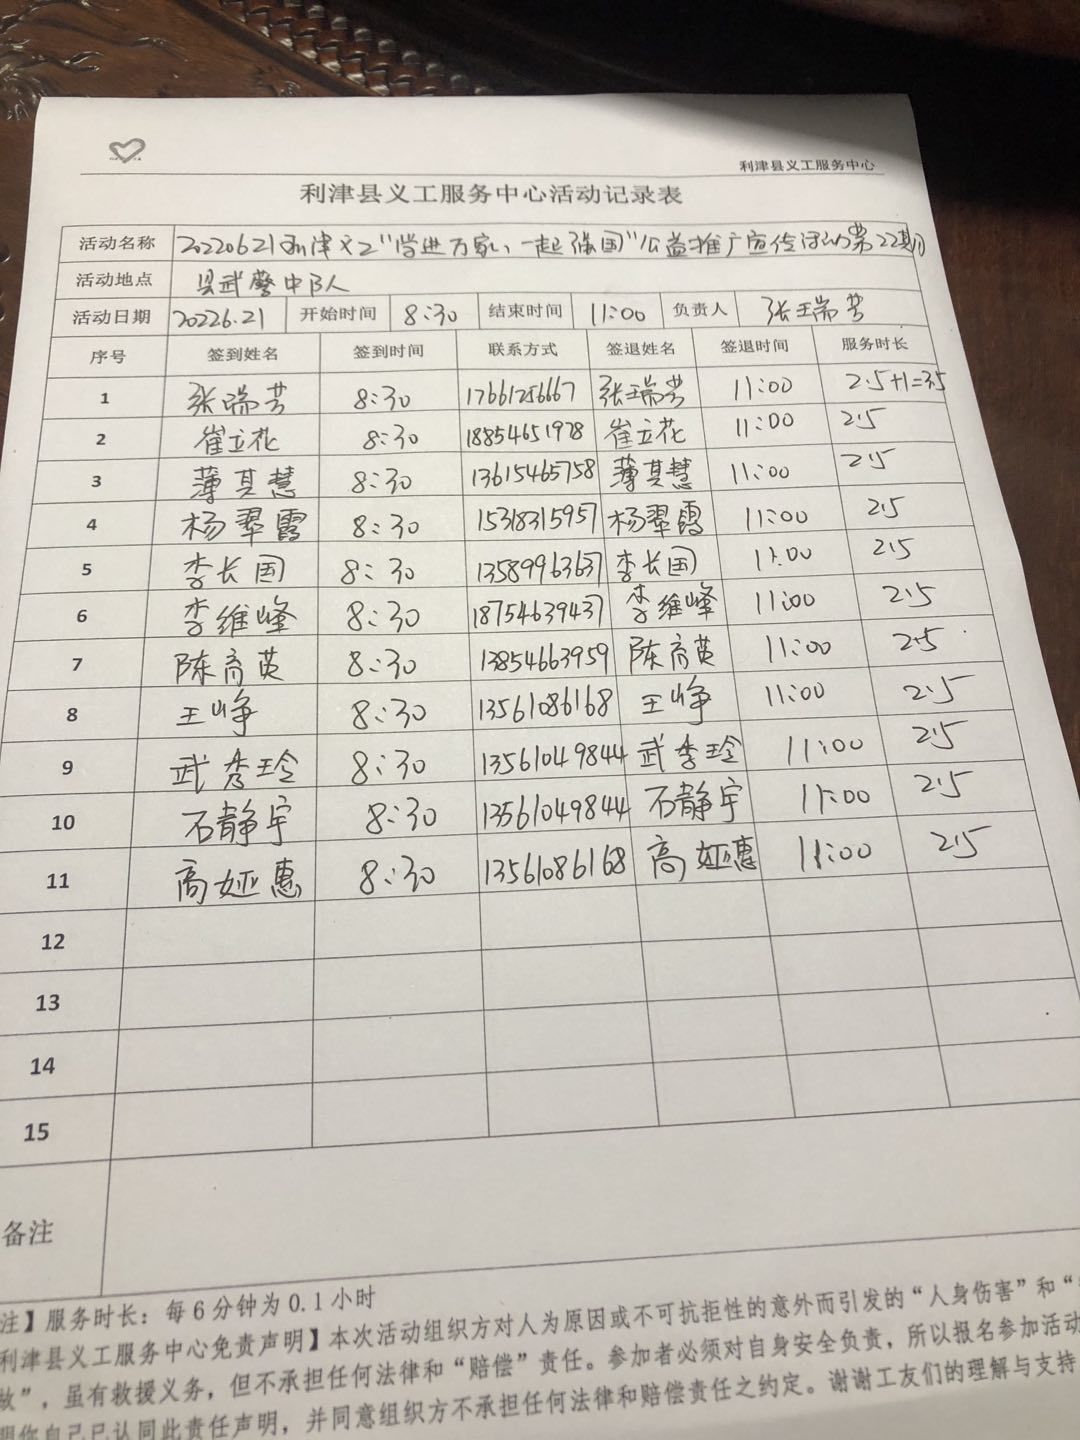 利津县义工服务中心
利津县义工服务中心活动记录表
活动名称 20220621利津义工"学进万家、一起强国"公益推广宣传活动第22期
活动地点 县武警中队
活动日期 20226.21 开始时间 8:30 结束时间 11:00 负责人 张瑞芳
序号 签到姓名 签到时间 联系方式 签退姓名 签退时间 服务时长
1 张瑞芳 8:30 17661256667 张瑞芳 11:00 2.5+1=3.5
2 崔立花 8:30 18854651978 崔立花 11:00 2.5
3 薄其慧 8:30 13615465758 薄其慧 11:00 2.5
4 杨翠霞 8:30 15318315957 杨翠霞 11:00 2.5
5 李长国 8:30 13589963637 李长国 11:00 2.5
6 李维峰 8:30 18754639437 李维峰 11:00 2.5
7 陈育英 8:30 13854663959 陈育英 11:00 2.5
8 王峥 8:30 13561086168 王峥 11:00 2.5
9 武秀玲 8:30 13561049844 武秀玲 11:00 2.5
10 石静宇 8:30 13561049844 石静宇 11:00 2.5
11 高娅惠 8:30 13561086168 高娅惠 11:00 2.5
12
13
14
15
备注
注】服务时长：每6分钟为0.1小时
利津县义工服务中心免责声明】本次活动组织方对人为原因或不可抗拒性的意外而引发的“人身伤害”和“
故”，虽有救援义务，但不承担任何法律和“赔偿”责任。参加者必须对自身安全负责，所以报名参加活动
明你自己已认同此责任声明，并同意组织方不承担任何法律和赔偿责任之约定。谢谢工友们的理解与支持